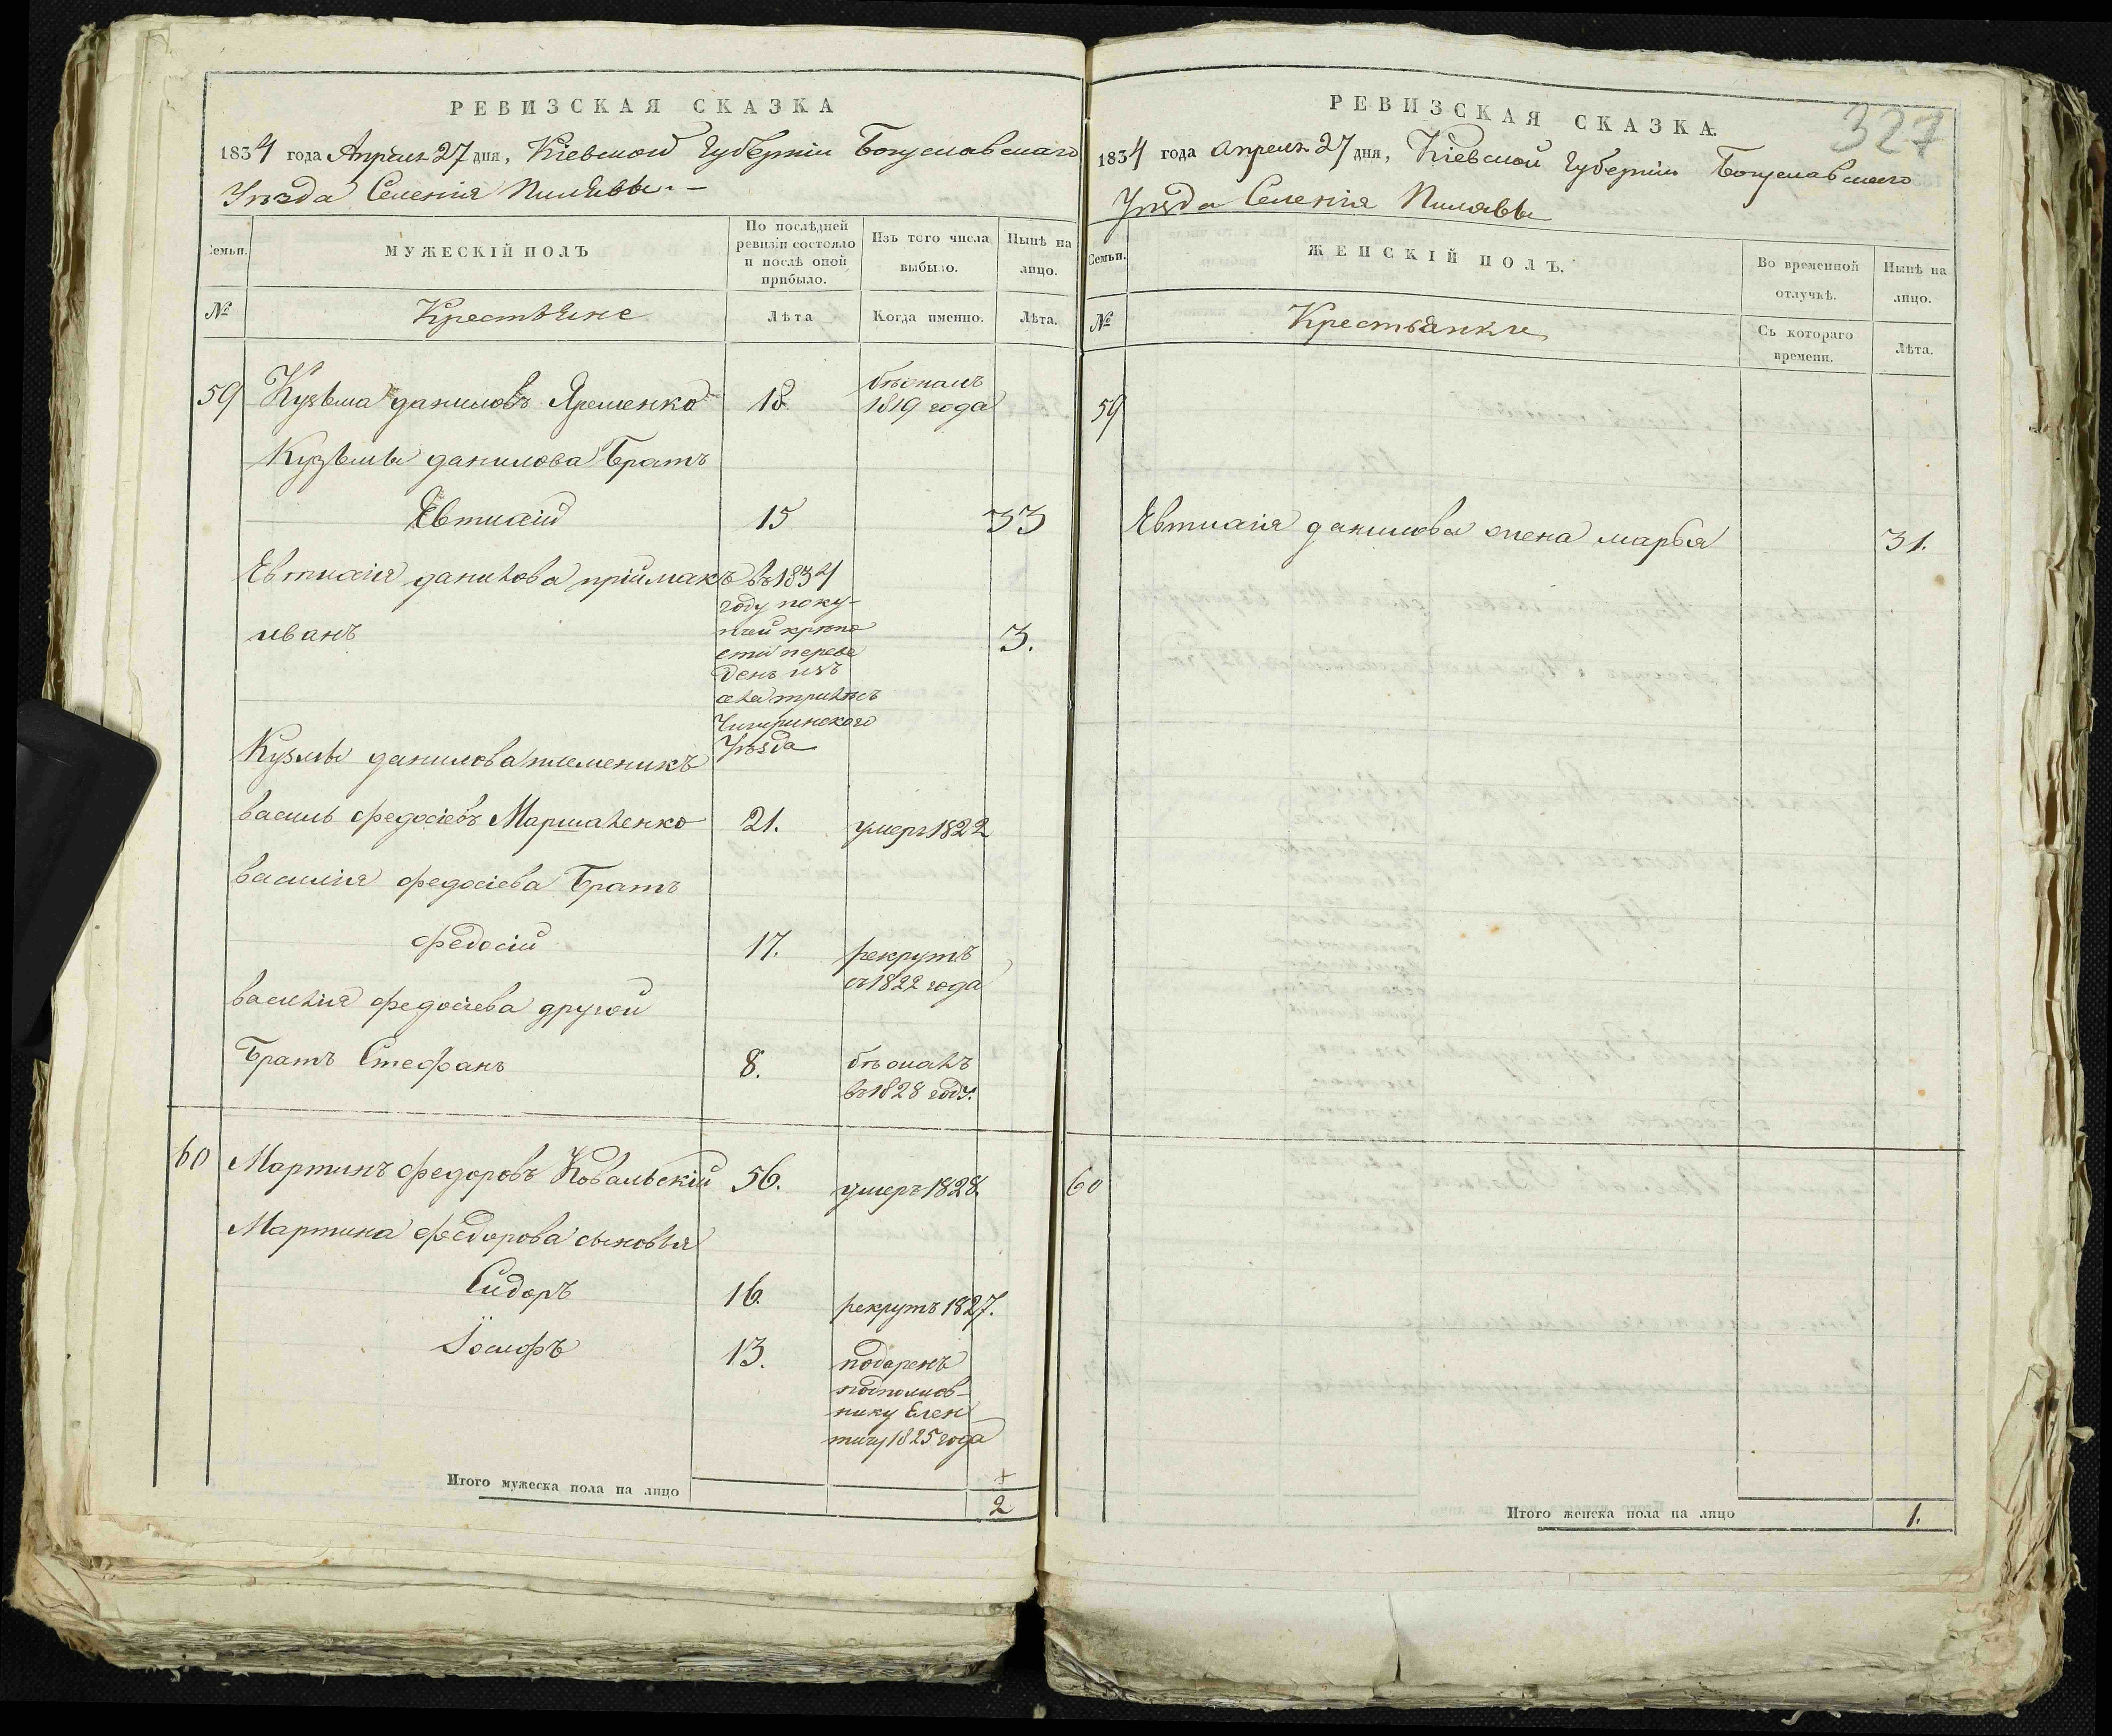 РЕВИЗСКАЯ СКАЗКА
1834 года Апреля 27 дня, Кіевской Губерніи Богуславскаго
Уѣзда Селенія Пилявы. —
Семьи.
МУЖЕСКІЙ ПОЛЪ
По послѣдней
ревизіи состояло
и послѣ оной
прибыло.
Изъ того числа
выбыло.
Нынѣ на
лицо.
№
Крестьяне
Лѣта
Когда именно.
Лѣта.
59 Кузьма даниловъ Яременко 18
бѣжалъ
1819 года
Кузьмы данилова Братъ
Евтихій 15 33
Евтихія данилова пріймакъ въ 1834
году поку-
пчей крѣпо
стій переве
денъ изъ
Чигиринскаго
Уѣзда
иванъ 3.
Кузмы данилова племеникъ
василь федосіевъ Маршаленко 21. умеръ 1822
василія федосіева Братъ
федосій 17. рекрутъ
съ 1822 года
василія федосіева другой
Братъ Стефанъ 8. бѣжалъ
въ 1828 году.
60 Мартинъ федоровъ Ковальскій 56. умеръ 1828.
Мартина федорова сыновья
Сидоръ 16. рекрутъ 1827.
Іосифъ 13. подаренъ
подполков-
нику Елен
тичу 1825 года
Итого мужеска пола на лицо 2
РЕВИЗСКАЯ СКАЗКА.
327
1834 года апреля 27 дня, Кіевской Губерніи Богуславскаго
Уѣзда Селенія Пилявы
Семьи.
ЖЕНСКІЙ ПОЛЪ.
Во временной
отлучкѣ.
Нынѣ на
лицо.
№
Крестьянки
Съ котораго
времени.
Лѣта.
59
Евтихія данилова жена марья 31.
60
Итого женска пола на лицо 1.